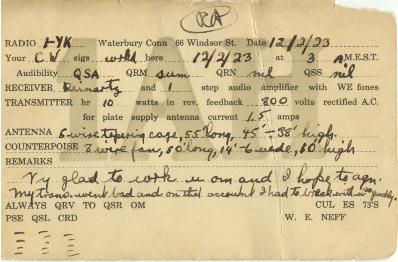 RA
RADIO 1-YK Waterbury Conn 66 Windsor St. Date 12/2/23
Your CW sigs workd here 12/2/23 at 3 A M.E.S.T.
Audibility QSA QRM sum QRN nil QSS nil
RECEIVER Reinartz and 1 step audio amplifier with WE fones
TRANSMITTER hr 10 watts in rev. feedback 800 volts rectified A.C.
for plate supply antenna current 1.5 amps
ANTENNA 6 wire tapering cage, 55' long, 45'-38' high.
COUNTERPOISE 8 wire fan, 60' long, 14'-6 wide, 10' high
REMARKS
Vy glad to work u om and I hope to agn.
My trans. went bad and on that account I had to break with u so quickly.
ALWAYS QRV TO QSR OM CUL ES 73'S
PSE QSL CRD W. E. NEFF